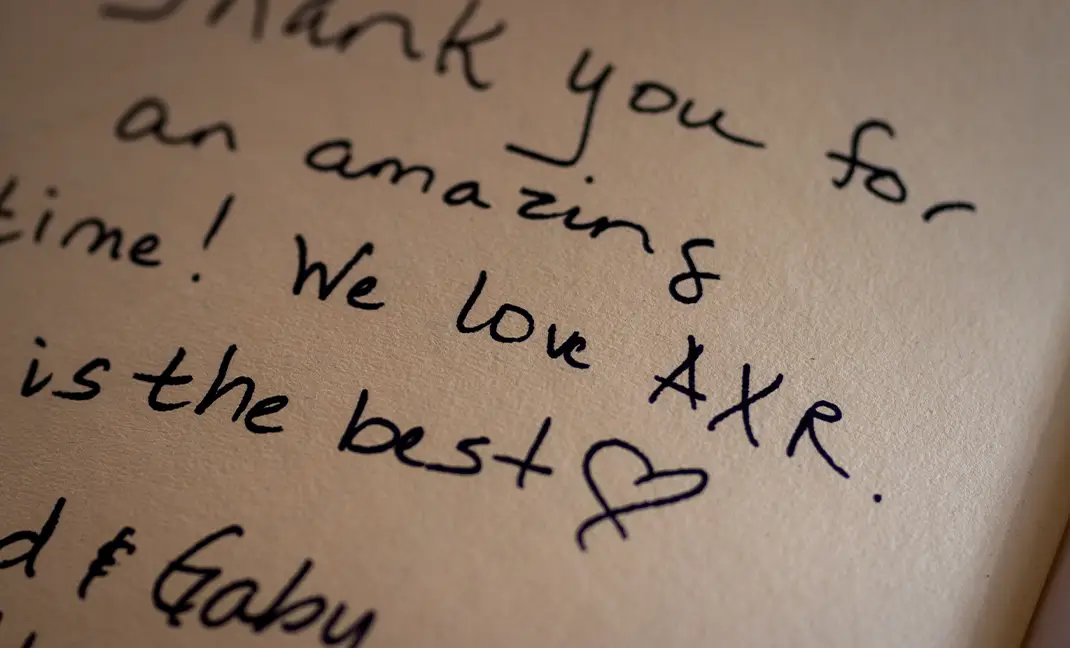 Thank you for
an amazing
time! We love AXR.
is the best♡
& Gaby